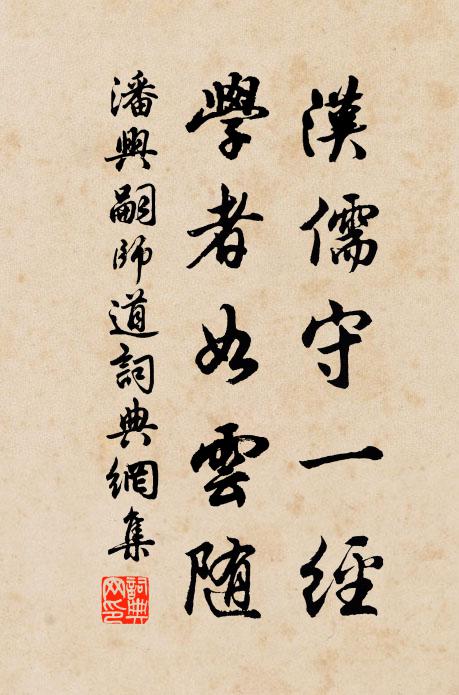 漢儒守一經
學者如雲随
潘興嗣師道詞典網集
詞典網印